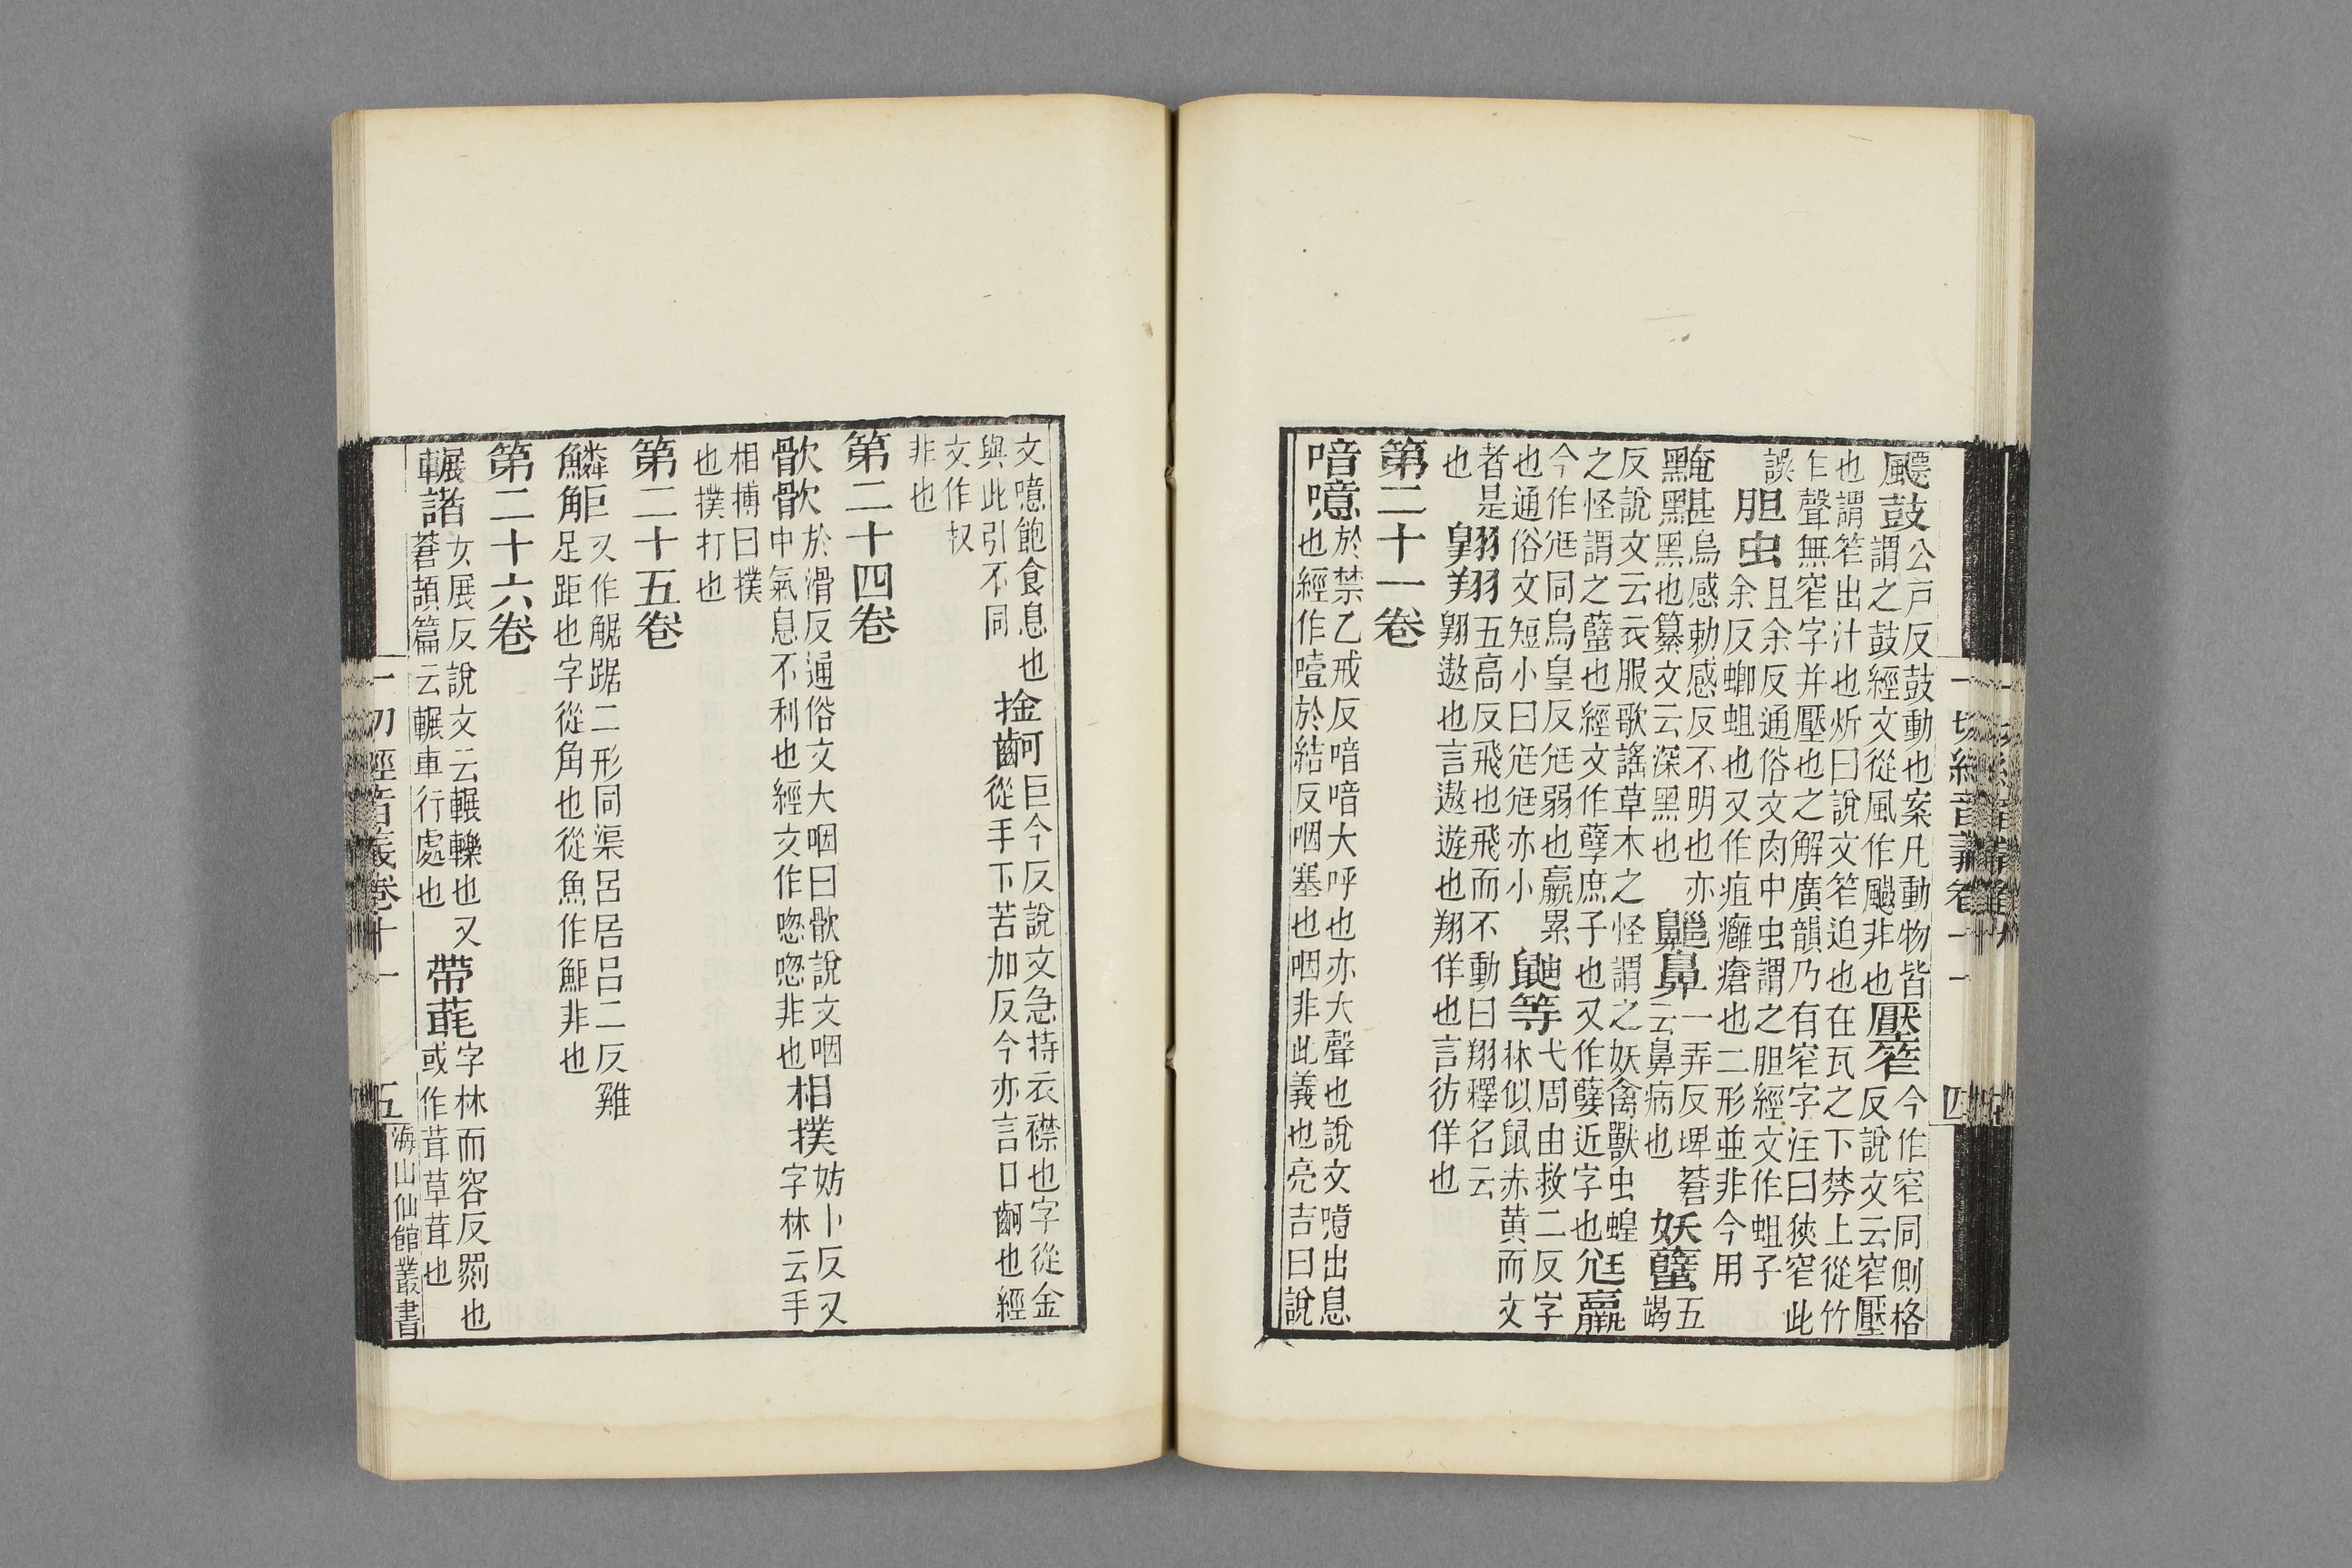 一切經音義卷十一
四
鼓公戸反鼓動也案凡動物皆
謂之鼓經文從風作颶非也
壓窄今作窄同側格
反說文云窄壓
也謂笮出汁也炘曰說文笮迫也在瓦之下棼上從竹
乍聲無窄字并壓也之解廣韻乃有窄字注曰狹窄此
誤
胆虫且余反通俗文肉中虫謂之胆經文作蛆子
余反蝍蛆也又作疽癰瘡也二形並非今用
黤黮烏感勅感反不明也亦
黑也纂文云深黑也
齆鼻一弄反埤蒼
云鼻病也
妖蠥五
謁
反說文云衣服歌謠草木之怪謂之妖禽獸虫蝗
之怪謂之蠥也經文作孽庶子也又作孼近字也
尫羸
今作尫同烏皇反尫弱也羸累
也通俗文短小曰尫尫亦小
鼬等弋周由救二反字
林似鼠赤黃而文
者是
也
翺翔五高反飛也飛而不動曰翔釋名云
翺遨也言遨遊也翔佯也言彷佯也
第二十一卷
喑噫於禁乙戒反喑喑大呼也亦大聲也說文噫出息
也經作噎於結反咽塞也咽非此義也亮吉曰說
文噫飽食息也
與此引不同
捦齣巨今反說文急持衣襟也字從金
從手下苦加反今亦言口齣也經
文作杈
非也
第二十四卷
歍歍於滑反通俗文大咽曰歍說文咽
中氣息不利也經文作唿唿非也
相撲妨卜反又
字林云手
相搏曰撲
也撲打也
第二十五卷
鱗距又作䠧踞二形同渠呂居呂二反雞
足距也字從角也從魚作鮔非也
第二十六卷
輾諸女展反說文云輾轢也又
蒼頡篇云輾車行處也
帶毦字林而容反罽也
或作茸草茸也
一切經音義卷十一
五
海山仙館叢書